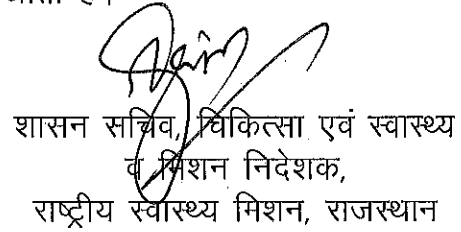 शासन सचिव, चिकित्सा एवं स्वास्थ्य
व मिशन निदेशक,
राष्ट्रीय स्वास्थ्य मिशन, राजस्थान